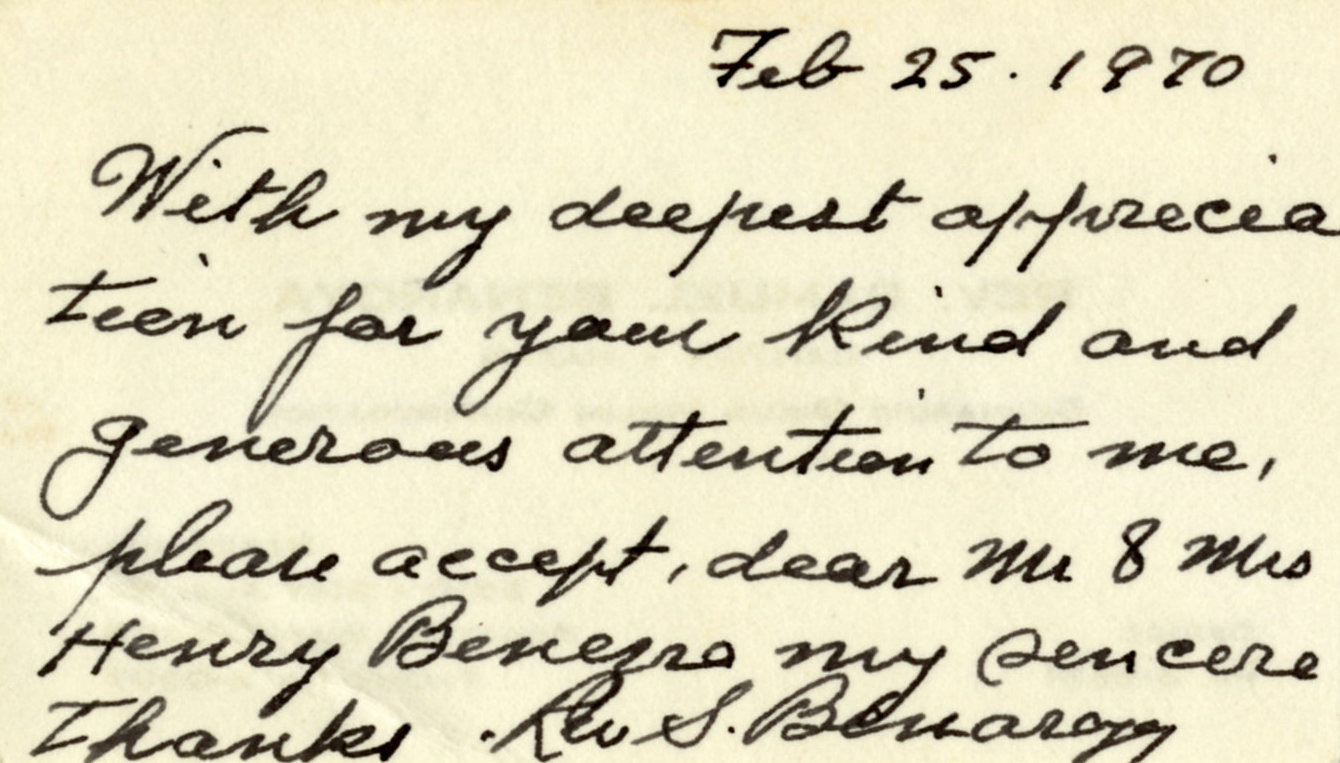 Feb 25. 1970
With my deepest apprecia
tion for your kind and
generous attention to me,
please accept, dear Mr & Mrs
Henry Benezra my sincere
Thanks. Rev S. Benaroya